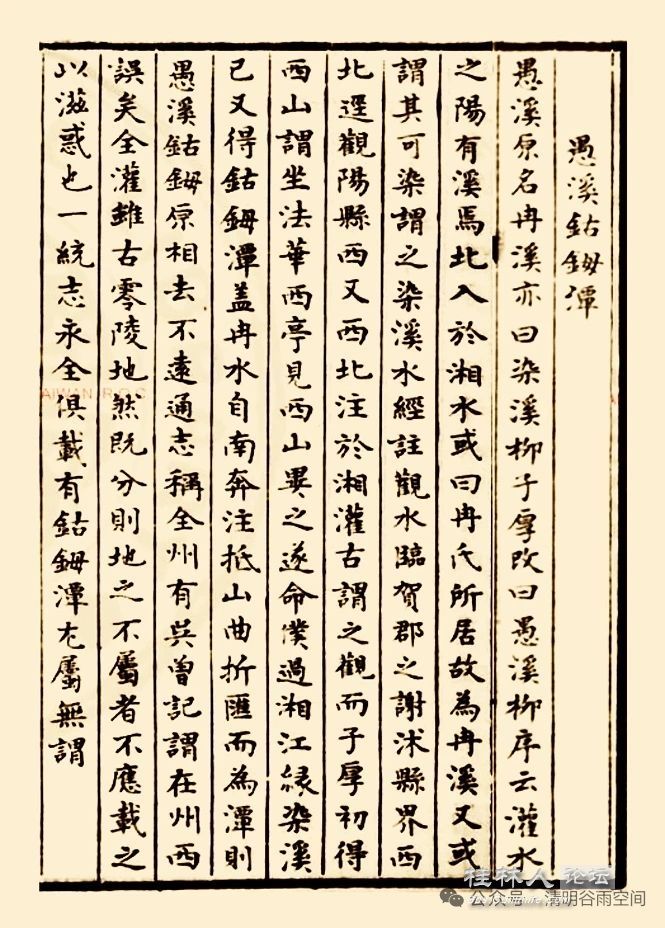 愚溪鈷鉧潭
愚溪原名冉溪亦曰染溪柳子厚改曰愚溪柳序云灌水
之陽有溪焉北入於湘水或曰冉氏所居故為冉溪又或
謂其可染謂之染溪水經註觀水臨賀郡之謝沭縣界西
北逕觀陽縣西又西北注於湘灌古謂之觀而子厚初得
西山謂坐法華西亭見西山異之遂命僕過湘江緣染溪
已又得鈷鉧潭蓋冉水自南奔注抵山曲折匯而為潭則
愚溪鈷鉧原相去不遠通志稱全州有吳曾記謂在州西
誤矣全灌雖古零陵地然既分則地之不屬者不應載之
以滋惑也一統志永全俱載有鈷鉧潭尤屬無謂
AIWAN R.O.C
桂林人论坛
公众号 清明谷雨空间